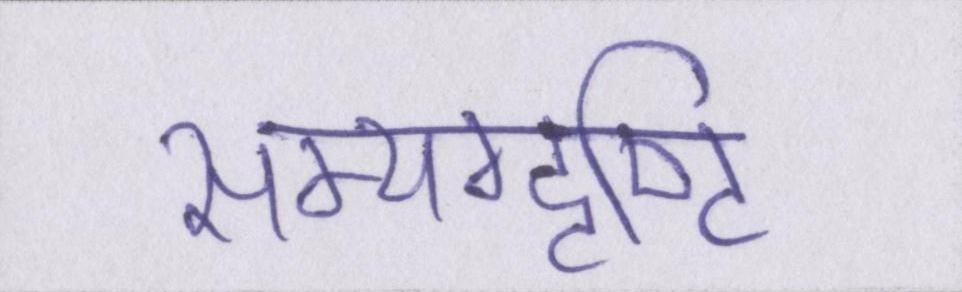 सम्यग्दृष्टि